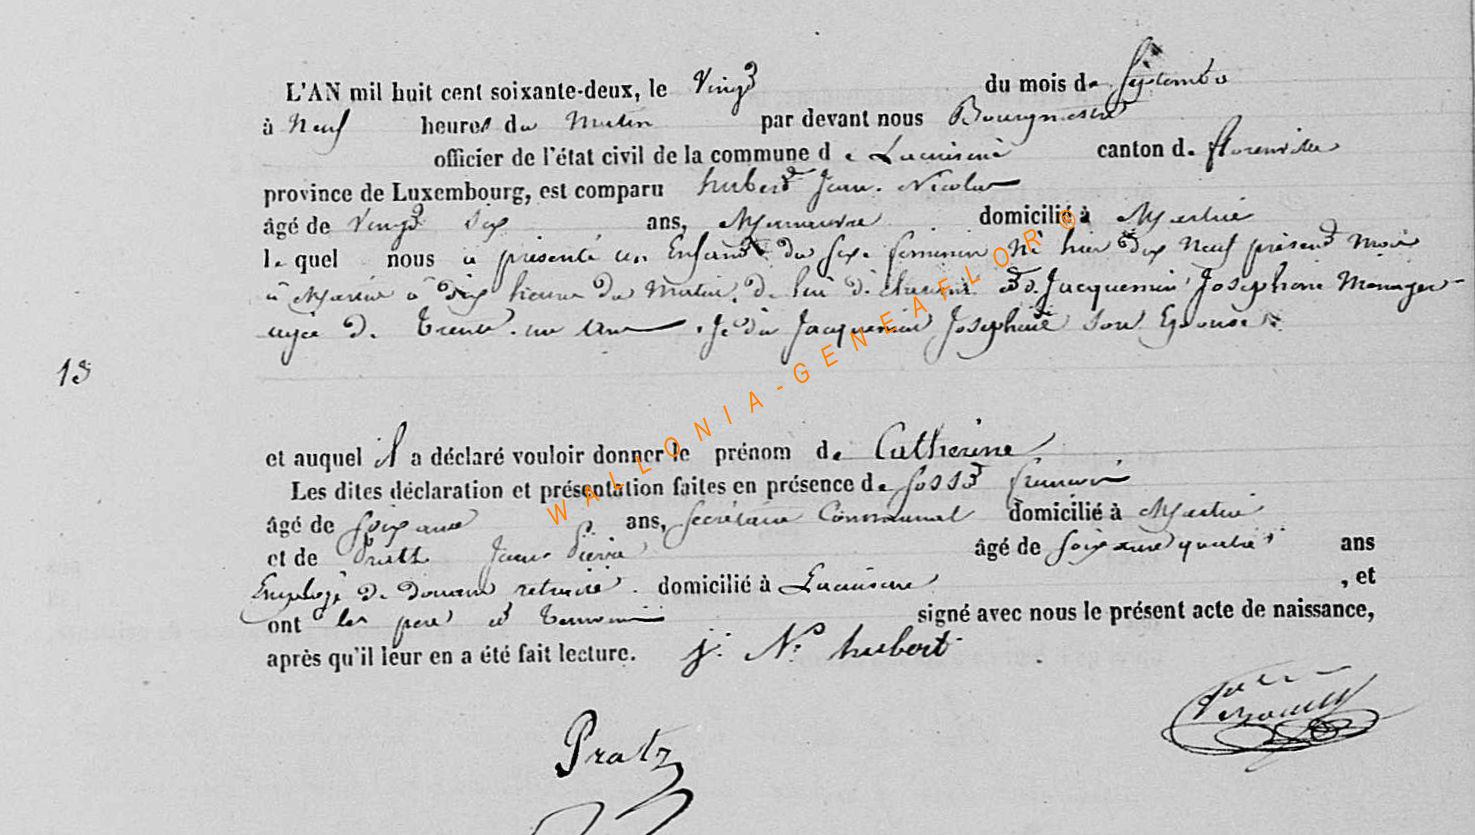 L'AN mil huit cent soixante-deux, le Vingt du mois de Septembre
à Neuf heures du Matin par devant nous Bourgmestre
officier de l'état civil de la commune de canton de florenville
province de Luxembourg, est comparu hubert Jean Nicolas
âgé de Vingt six ans, Manœuvre domicilié à Martué
lequel nous a présenté un Enfant du sexe feminin Né hier dix Neuf présent mois
à Martué à dix heures du Matin, de lui déclarant et de Jacquemin Josephine Menagere
agée de trente un ans Jacquemin Josephine son Epouse
13
et auquel il a déclaré vouloir donner le prénom de Catherine
Les dites déclaration et présentation faites en présence de
âgé de ans, secrétaire Communal domicilié à Martué
et de Jean Pierre âgé de soixante quatre ans
Employé de douane retraité domicilié à , et
ont les père et temoins signé avec nous le présent acte de naissance,
après qu'il leur en a été fait lecture. J. N. hubert
Pratz
WALLONIA-GENEAFLOR ©